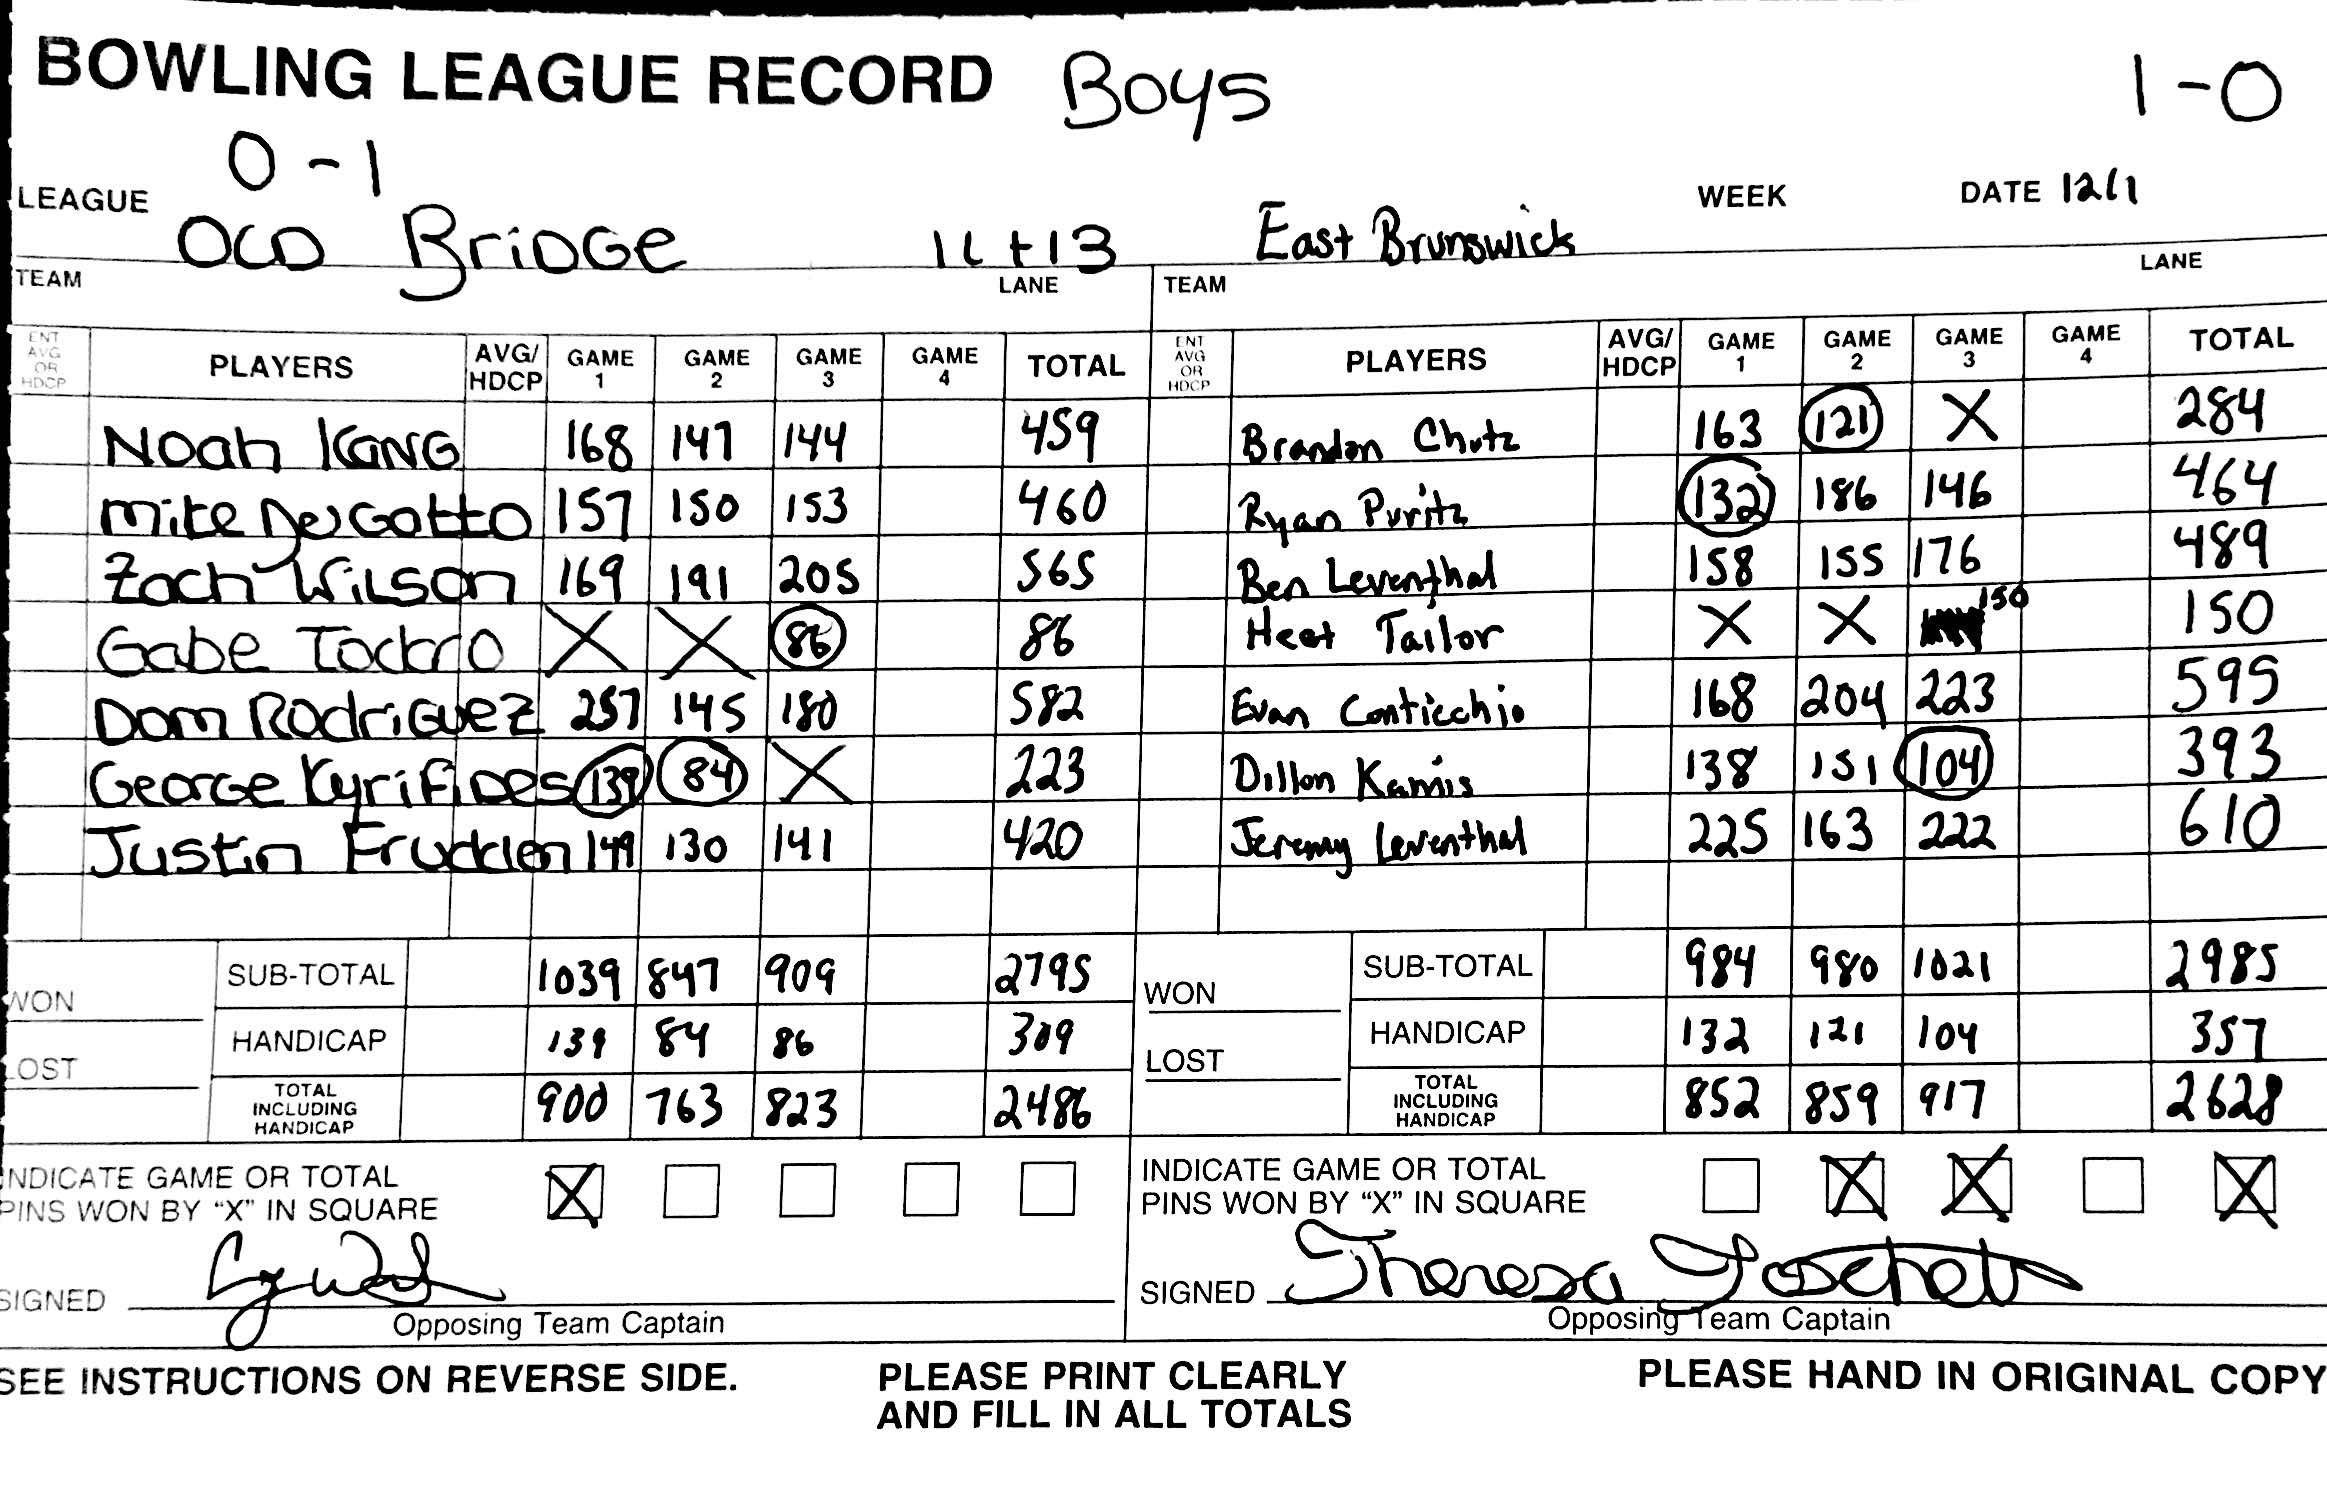 BOWLING LEAGUE RECORD Boys 1-0
0-1
LEAGUE WEEK DATE 12/1
OLD BRiDGe 11+13 East Brunswick
TEAM LANE TEAM LANE
ENT AVG OR HDCP PLAYERS AVG/HDCP GAME 1 GAME 2 GAME 3 GAME 4 TOTAL ENT AVG OR HDCP PLAYERS AVG/HDCP GAME 1 GAME 2 GAME 3 GAME 4 TOTAL
Noah KANG 168 147 144 459 Brandon Chutz 163 121 X 284
Mike DelGotto 157 150 153 460 Ryan Puritz 132 186 146 464
Zach Wilson 169 191 205 565 Ben Leventhal 158 155 176 489
Gabe X X 86 86 Heet Tailor X X 150 150
Dom RodriGuez 257 145 180 582 Evan Conticchio 168 204 223 595
George KyriFiDes 139 84 X 223 Dillon Kamis 138 151 104 393
Justin 149 130 141 420 Jeremy Leventhal 225 163 222 610
SUB-TOTAL 1039 847 909 2795 SUB-TOTAL 984 980 1021 2985
WON WON
HANDICAP 139 84 86 309 HANDICAP 132 121 104 357
LOST LOST
TOTAL INCLUDING HANDICAP 900 763 823 2486 TOTAL INCLUDING HANDICAP 852 859 917 2628
INDICATE GAME OR TOTAL X INDICATE GAME OR TOTAL X X X
PINS WON BY “X” IN SQUARE PINS WON BY “X” IN SQUARE
SIGNED SIGNED Theresa
Opposing Team Captain Opposing Team Captain
SEE INSTRUCTIONS ON REVERSE SIDE. PLEASE PRINT CLEARLY PLEASE HAND IN ORIGINAL COPY
AND FILL IN ALL TOTALS